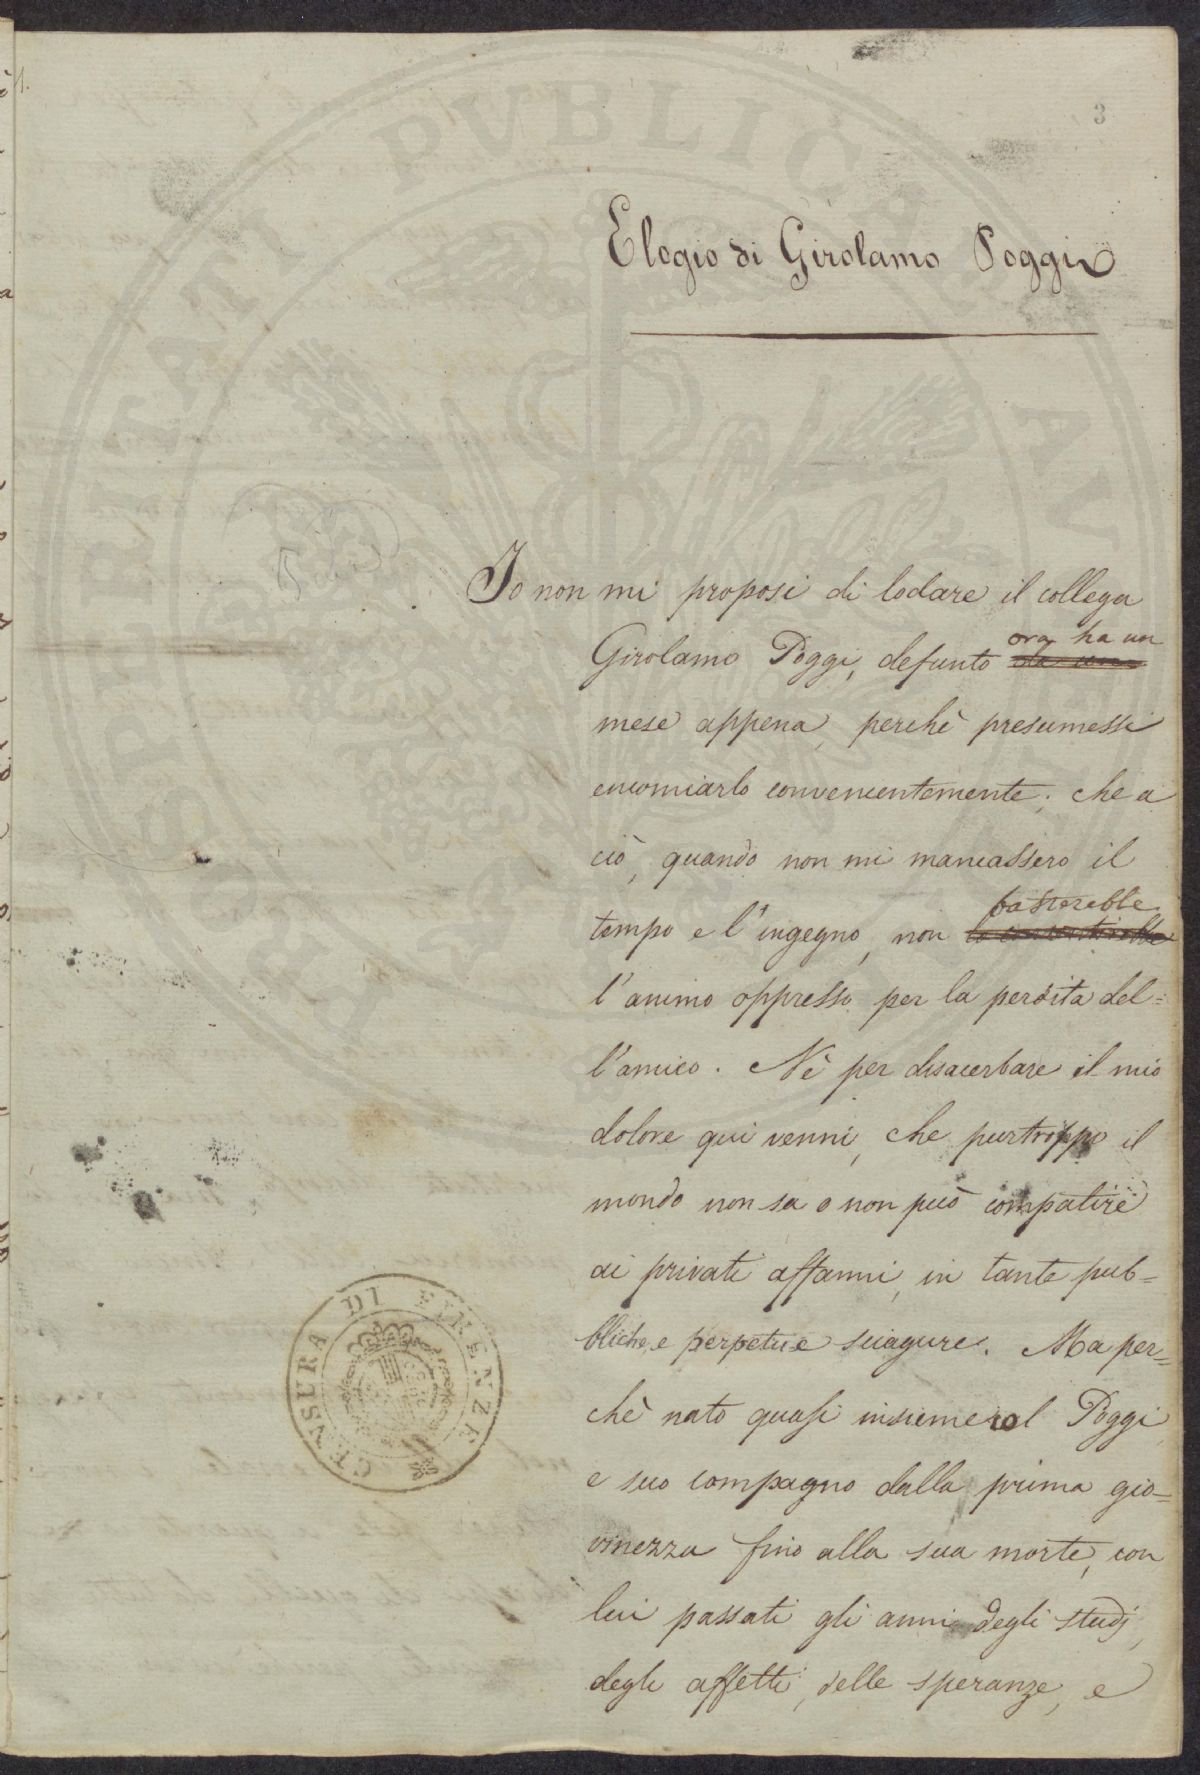 3
Elogio di Girolamo Poggi
Io non mi proposi di lodare il collega
ora ha un
Girolamo Poggi, defunto
mese appena, perchè presumessi
encomiarlo convenientemente; che a
ciò, quando non mi mancassero il
basterebbe
tempo e l'ingegno, non
l'animo oppresso per la perdita del=
l'amico. Nè per disacerbare il mio
dolore qui venni, che purtroppo il
mondo non sa o non può compatire
ai privati affanni, in tante pub=
bliche e perpetue sciagure. Ma per=
chè nato quasi insieme al Poggi,
e suo compagno dalla prima gio=
vinezza fino alla sua morte, con
lui passati gli anni degli studj,
degli affetti, delle speranze, e
CENSURA DI FIRENZE